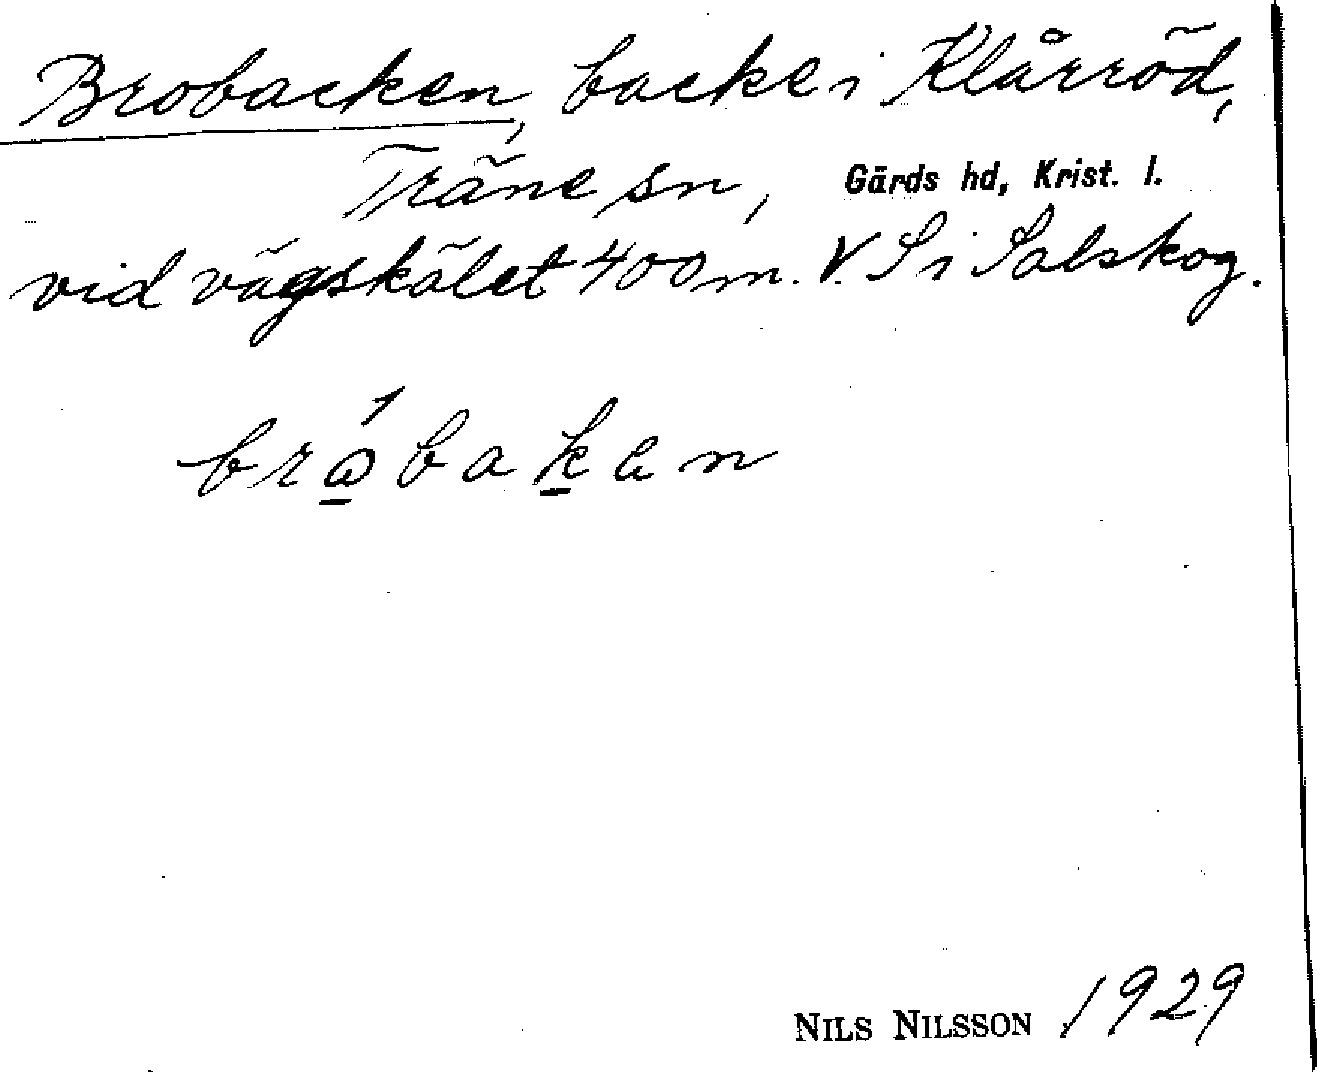 Brobacken, backe i Klårröd,
Träne sn, Gärds hd, Krist. l.
vid vägskälet 400 m. V. S i Salskog.
bra̱´baḵen
NILS NILSSON 1929